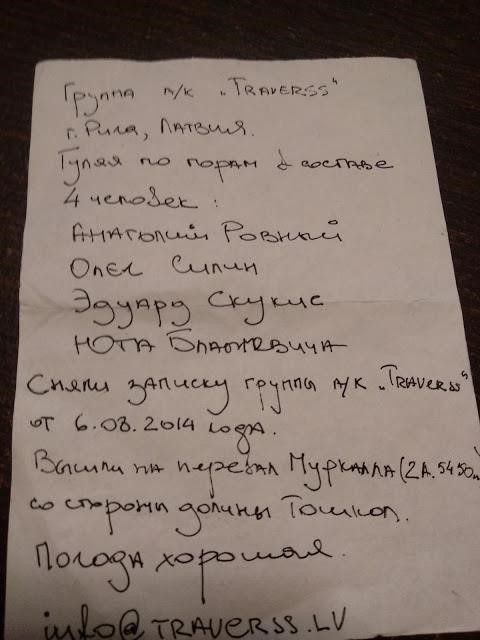 Группа а/к „TRAVERSS“
г. Рига, Латвия.
Гуляя по горам в составе
4 человек:
Анатолий Ровный
Олег Силин
Эдуард Скукис
Сняли записку группы а/к „TRAVERSS“
от 6.08.2014 года.
Вышли на перевал (2А. 5450м)
со стороны долины
Погода хорошая.
info@TRAVERSS.LV